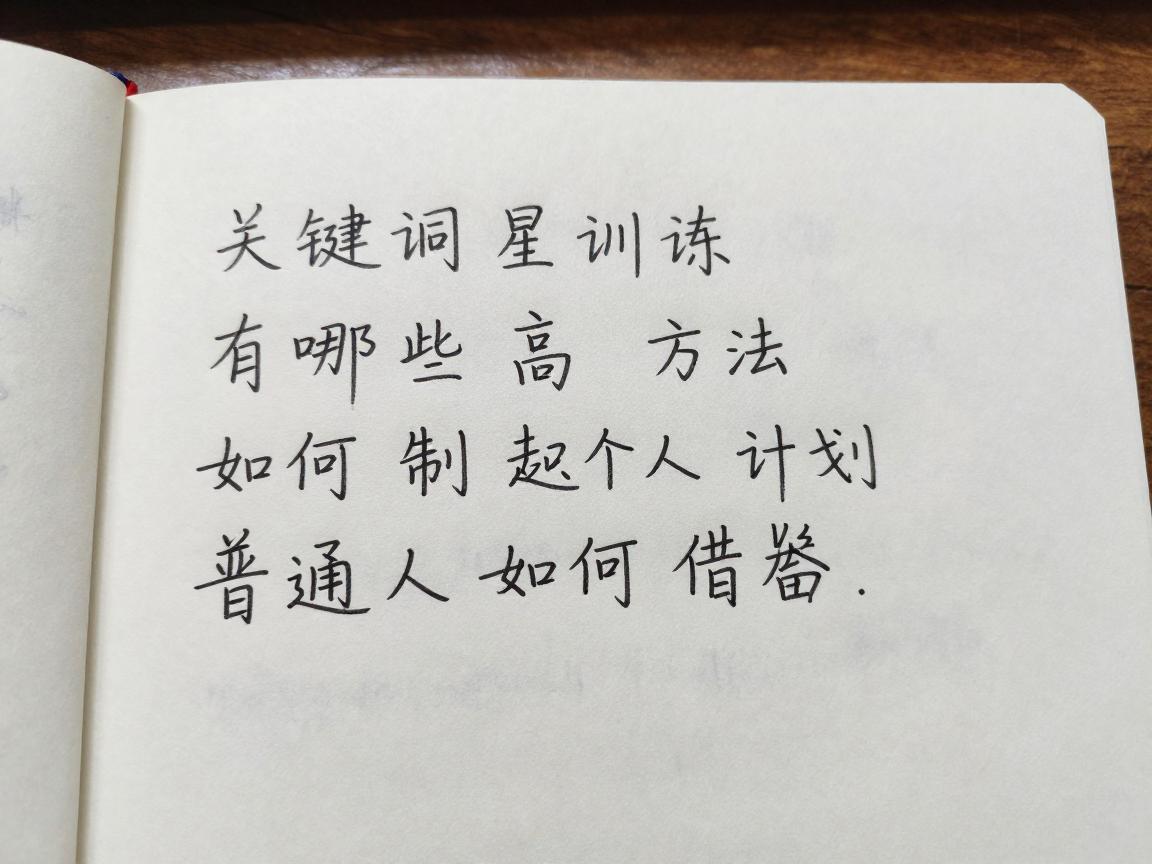 关键词 星训练
有哪些 高 方法
如何 制 起个人 计划
普通人 如何 借